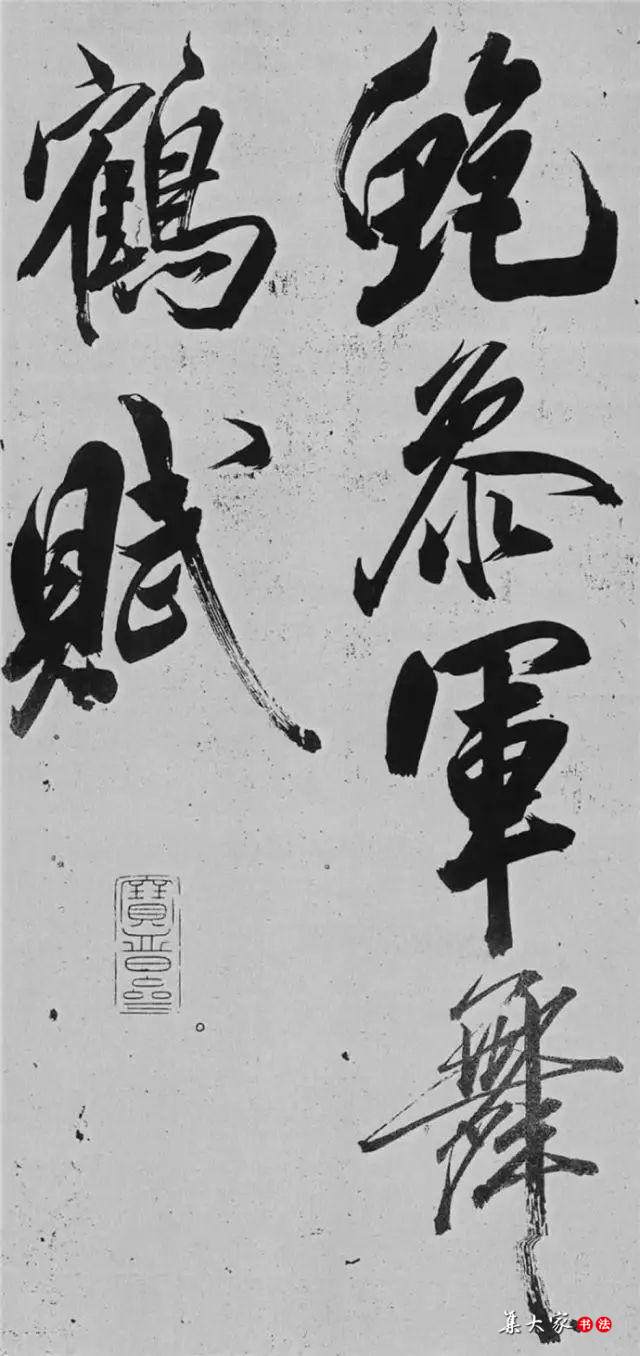 鮑參軍舞
鶴賦
寶晉齋
集大家書法